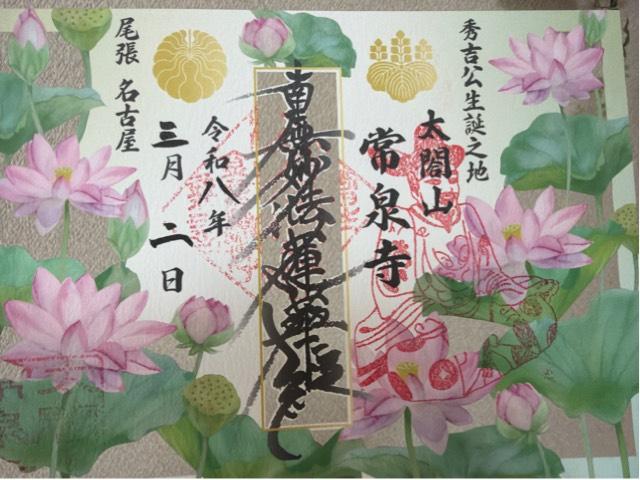 秀吉公生誕之地
太閤山
常泉寺
南無妙法蓮華経
令和八年
三月二日
尾張 名古屋